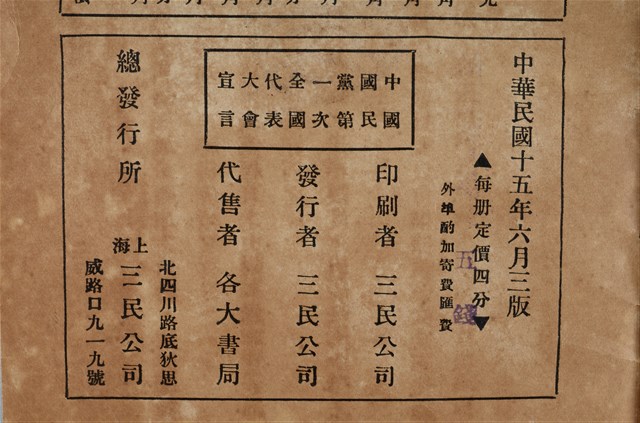 中華民國十五年六月三版
▲每册定價四分▼
五錢
外埠酌加寄費匯費
中國國民黨第一次全國代表大會宣言
印刷者 三民公司
發行者 三民公司
代售者 各大書局
總發行所
上海 三民公司
北四川路底狄思
威路口九一九號